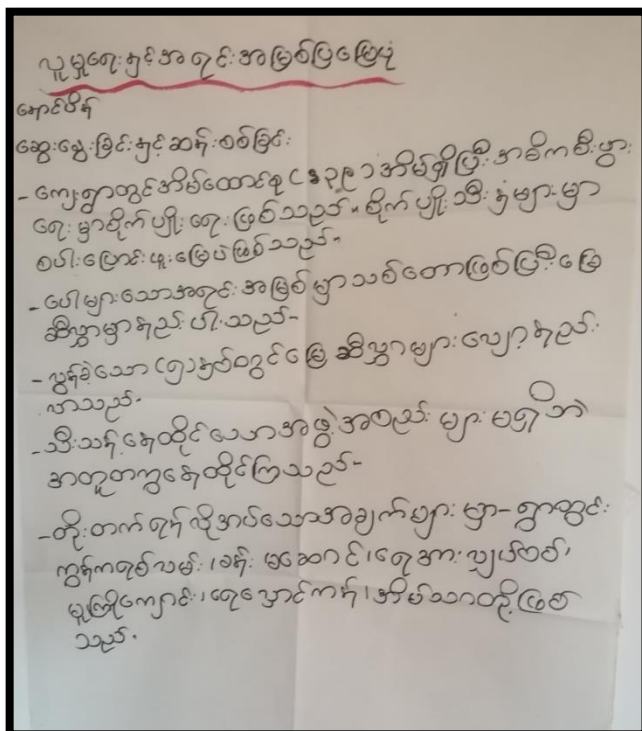 လူမှုရေးနှင့်အရင်းအမြစ်ပြမြေပုံ
ညောင်ပိန်
ဆွေးနွေးခြင်းနှင့်ဆန်းစစ်ခြင်း
- ကျေးရွာတွင်အိမ်ထောင်စု (၁၃၉) အိမ်ရှိပြီး အဓိကစီးပွား
ရေးမှာစိုက်ပျိုးရေးဖြစ်သည်။ စိုက်ပျိုးသီးနှံများမှာ
စပါး၊ပြောင်းဖူး၊မြေပဲဖြစ်သည်-
- ပေါများသောအရင်းအမြစ်မှာသစ်တောဖြစ်ပြီးမြေ
ဆီလွှာမှာနည်းပါးသည်-
- လွန်ခဲ့သော (၅) နှစ်တွင်မြေဆီလွှာများလျော့နည်း
လာသည်-
- သီးသန့်နေထိုင်သောအဖွဲ့အစည်းများမရှိဘဲ
အတူတကွနေထိုင်ကြသည်-
- တိုးတက်ရန်လိုအပ်သောအချက်များမှာ - ရွာတွင်း
ကွန်ကရစ်လမ်း၊ ခန်းမဆောင်၊ ရေအားလျှပ်စစ်၊
မူကြိုကျောင်း၊ ရေလှောင်ကန်၊ အိမ်သာတို့ဖြစ်
သည်-